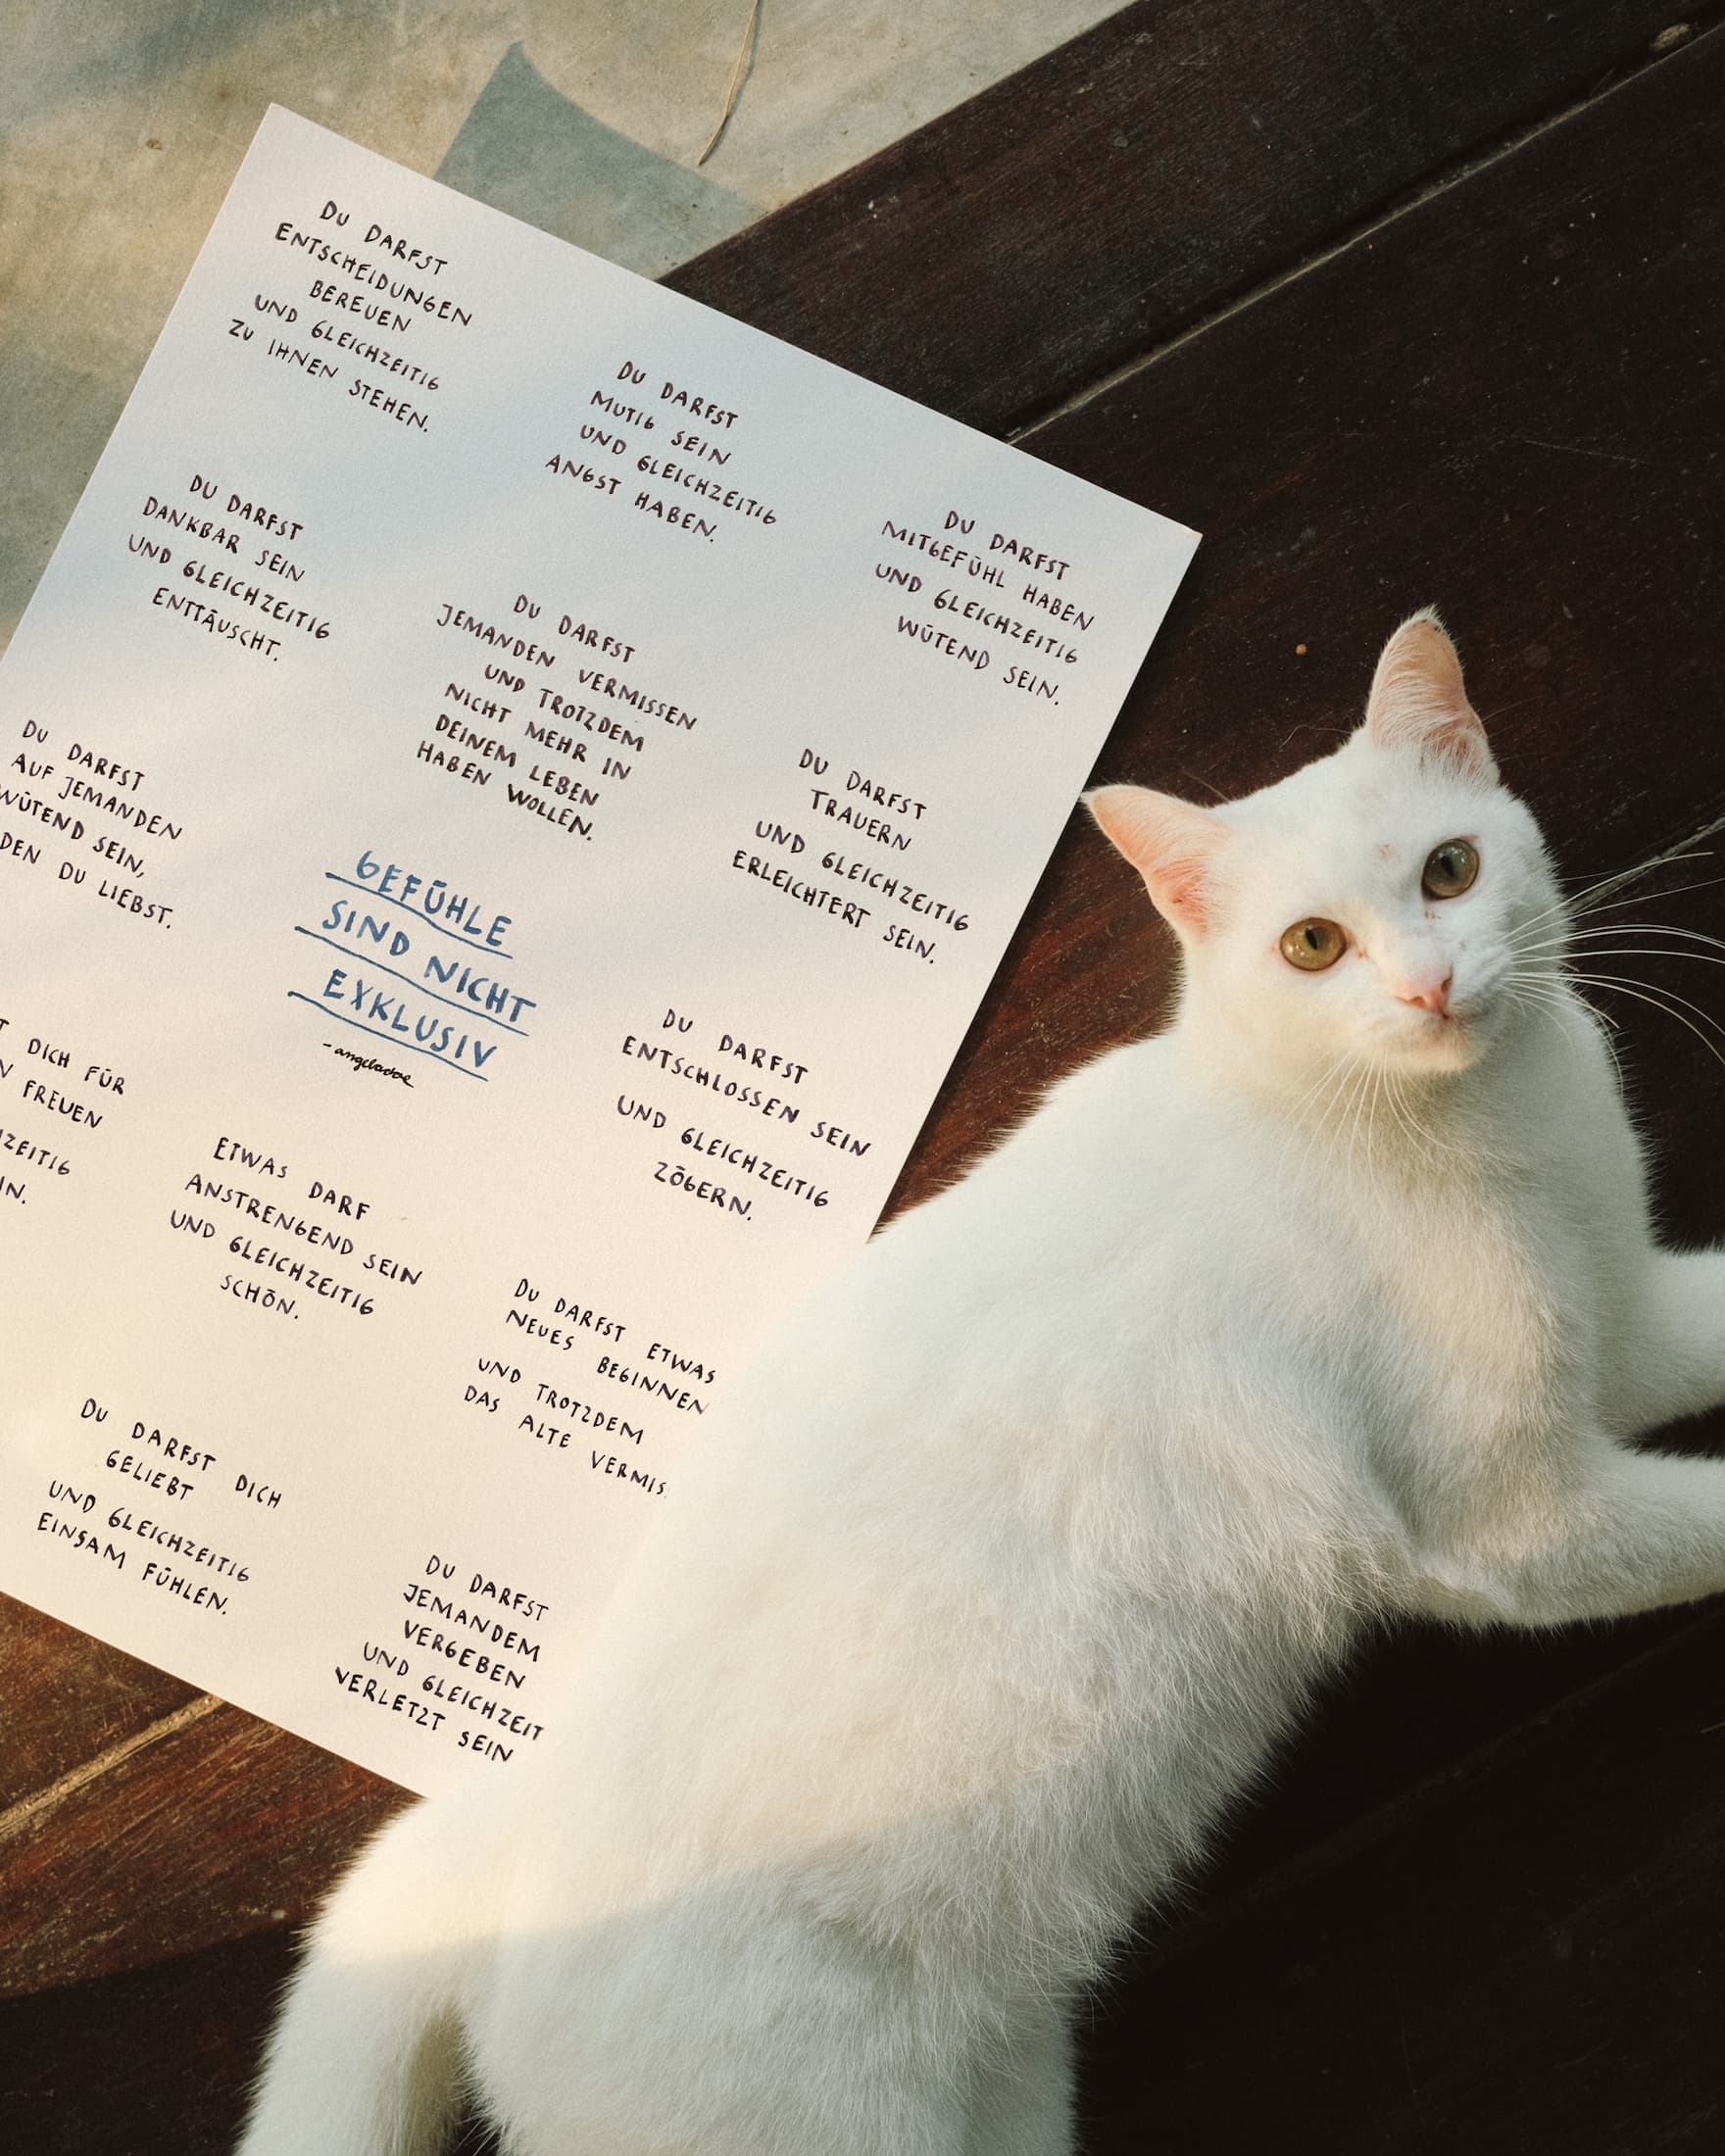 DU DARFST
ENTSCHEIDUNGEN
BEREUEN
UND GLEICHZEITIG
ZU IHNEN STEHEN.
DU DARFST
MUTIG SEIN
UND GLEICHZEITIG
ANGST HABEN.
DU DARFST
MITGEFÜHL HABEN
UND GLEICHZEITIG
WÜTEND SEIN.
DU DARFST
DANKBAR SEIN
UND GLEICHZEITIG
ENTTÄUSCHT.
DU DARFST
JEMANDEN VERMISSEN
UND TROTZDEM
NICHT MEHR IN
DEINEM LEBEN
HABEN WOLLEN.
DU DARFST
TRAUERN
UND GLEICHZEITIG
ERLEICHTERT SEIN.
DU DARFST
AUF JEMANDEN
WÜTEND SEIN,
DEN DU LIEBST.
GEFÜHLE
SIND NICHT
EXKLUSIV
- angeladoe
DU DARFST
ENTSCHLOSSEN SEIN
UND GLEICHZEITIG
ZÖGERN.
T DICH FÜR
N FREUEN
ZEITIG
IN.
ETWAS DARF
ANSTRENGEND SEIN
UND GLEICHZEITIG
SCHÖN.
DU DARFST ETWAS
NEUES BEGINNEN
UND TROTZDEM
DAS ALTE VERMIS
DU DARFST DICH
GELIEBT
UND GLEICHZEITIG
EINSAM FÜHLEN.
DU DARFST
JEMANDEM
VERGEBEN
UND GLEICHZEIT
VERLETZT SEIN